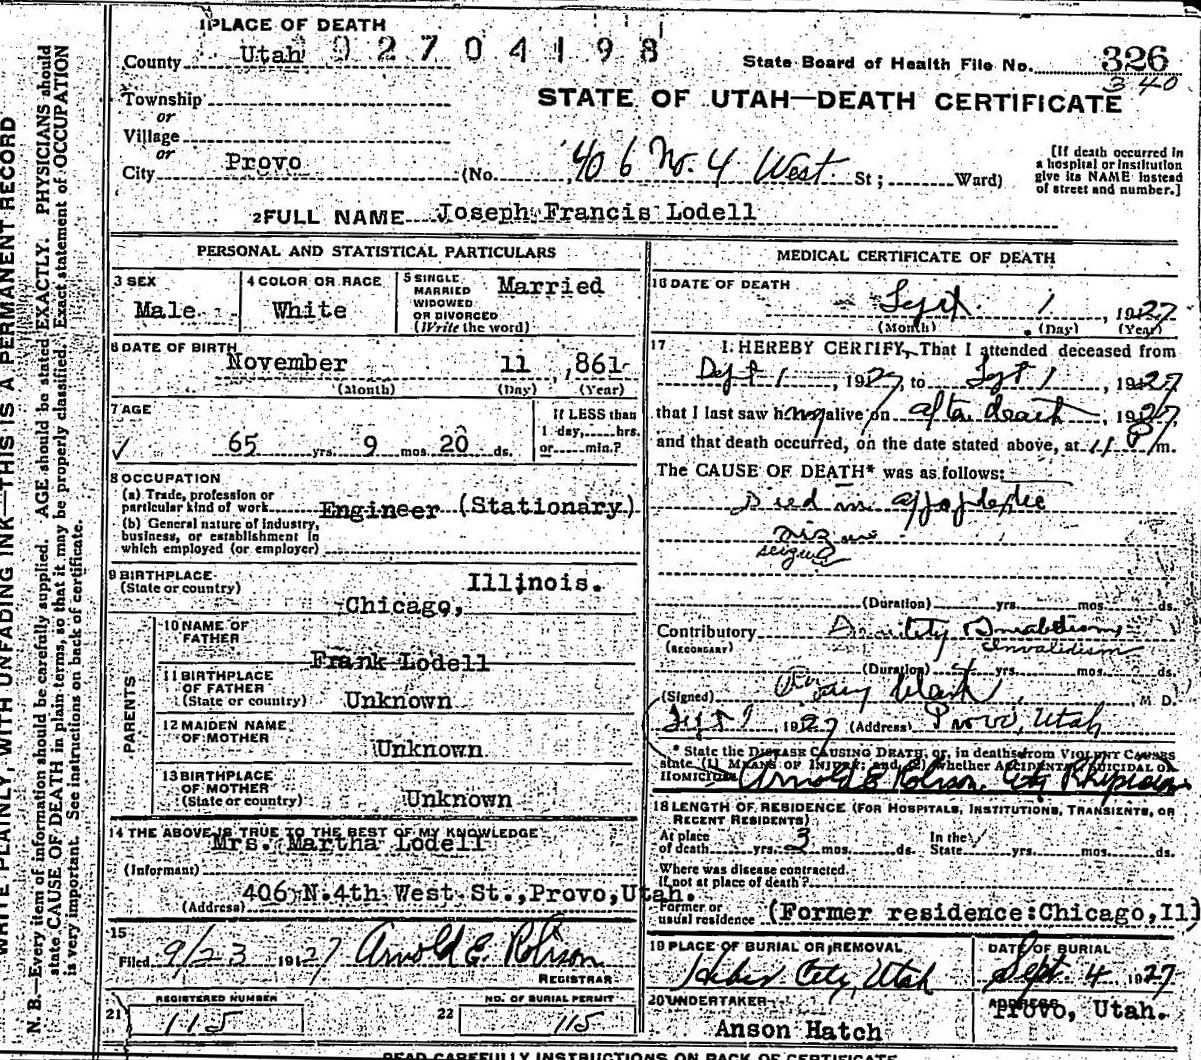 1 PLACE OF DEATH
02704198
County Utah
State Board of Health File No. 326
340
Township
or
STATE OF UTAH—DEATH CERTIFICATE
Village
or
City Provo (No. 406 No. 4 West St; Ward)
[If death occurred in
a hospital or institution
give its NAME instead
of street and number.]
2 FULL NAME Joseph Francis Lodell
PERSONAL AND STATISTICAL PARTICULARS
3 SEX
Male
4 COLOR OR RACE
White
5 SINGLE
MARRIED
WIDOWED
OR DIVORCED
(Write the word)
Married
6 DATE OF BIRTH
November 11, 861
(Month) (Day) (Year)
7 AGE
65 yrs. 9 mos. 20 ds.
If LESS than
1 day, hrs.
or min.?
8 OCCUPATION
(a) Trade, profession or
particular kind of work Engineer (Stationary)
(b) General nature of industry,
business, or establishment in
which employed (or employer)
9 BIRTHPLACE
(State or country)
Illinois.
Chicago,
PARENTS
10 NAME OF
FATHER
Frank Lodell
11 BIRTHPLACE
OF FATHER
(State or country) Unknown
12 MAIDEN NAME
OF MOTHER
Unknown
13 BIRTHPLACE
OF MOTHER
(State or country) Unknown
14 THE ABOVE IS TRUE TO THE BEST OF MY KNOWLEDGE
Mrs. Martha Lodell
(Informant)
406 N.4th West St., Provo, Utah.
(Address)
15
Filed 9/23 1927 Arnold E. Robison
REGISTRAR
21 REGISTERED NUMBER
115
22 NO. OF BURIAL PERMIT
115
MEDICAL CERTIFICATE OF DEATH
16 DATE OF DEATH
Sept. 1, 1927
(Month) (Day) (Year)
17 I HEREBY CERTIFY, That I attended deceased from
Sept 1, 1927, to Sept 1, 1927
that I last saw him alive on after death, 1927,
and that death occurred, on the date stated above, at 11 P m.
The CAUSE OF DEATH* was as follows:
Died in
seizure
(Duration) yrs. mos. ds.
Contributory
(SECONDARY)
invalidism
(Duration) yrs. mos. ds.
(Signed) M D.
Sept 1927 (Address) Provo, Utah
* State the DISEASE CAUSING DEATH, or, in deaths from VIOLENT CAUSES
state (1) MEANS OF INJURY; and (2) whether ACCIDENTAL, SUICIDAL OR
HOMICIDAL. Arnold E Robison City Physician
18 LENGTH OF RESIDENCE (FOR HOSPITALS, INSTITUTIONS, TRANSIENTS, OR
RECENT RESIDENTS)
At place
of death yrs. 3 mos. ds. In the
State yrs. mos. ds.
Where was disease contracted,
if not at place of death?
Former or
usual residence (Former residence:Chicago,Il)
19 PLACE OF BURIAL OR REMOVAL
Heber City, Utah
DATE OF BURIAL
Sept. 4 1927
20 UNDERTAKER
Anson Hatch
ADDRESS
Provo, Utah.
WRITE PLAINLY, WITH UNFADING INK—THIS IS A PERMANENT RECORD
N. B.—Every item of information should be carefully supplied. AGE should be stated EXACTLY. PHYSICIANS should
state CAUSE OF DEATH in plain terms, so that it may be properly classified. Exact statement of OCCUPATION
is very important. See instructions on back of certificate.
READ CAREFULLY INSTRUCTIONS ON BACK OF CERTIFICATE